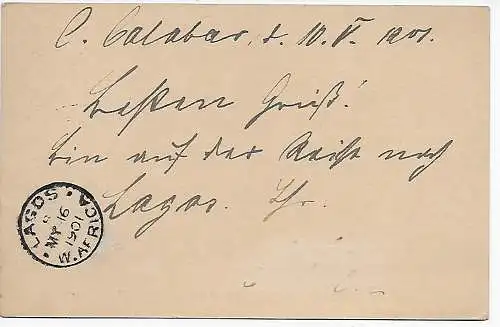 C. Calabar, d. 10. V. 1901.
Besten Gruß!
bin auf der Reise nach
Lagos. Ihr
LAGOS
MY 16
1901
W. AFRICA